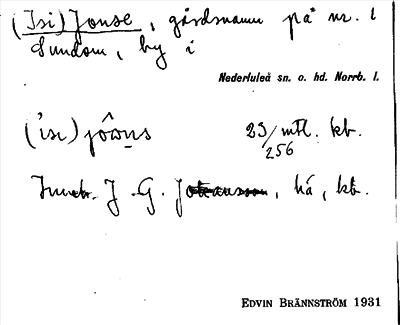 (Isi) Jonse, gårdsnamn på nr. 1
Sundom, by i
Nederluleå sn. o. hd. Norrb. l.
23/256 mtl. kb.
J. G. Johansson, hä, kb.
EDVIN BRÄNNSTRÖM 1931